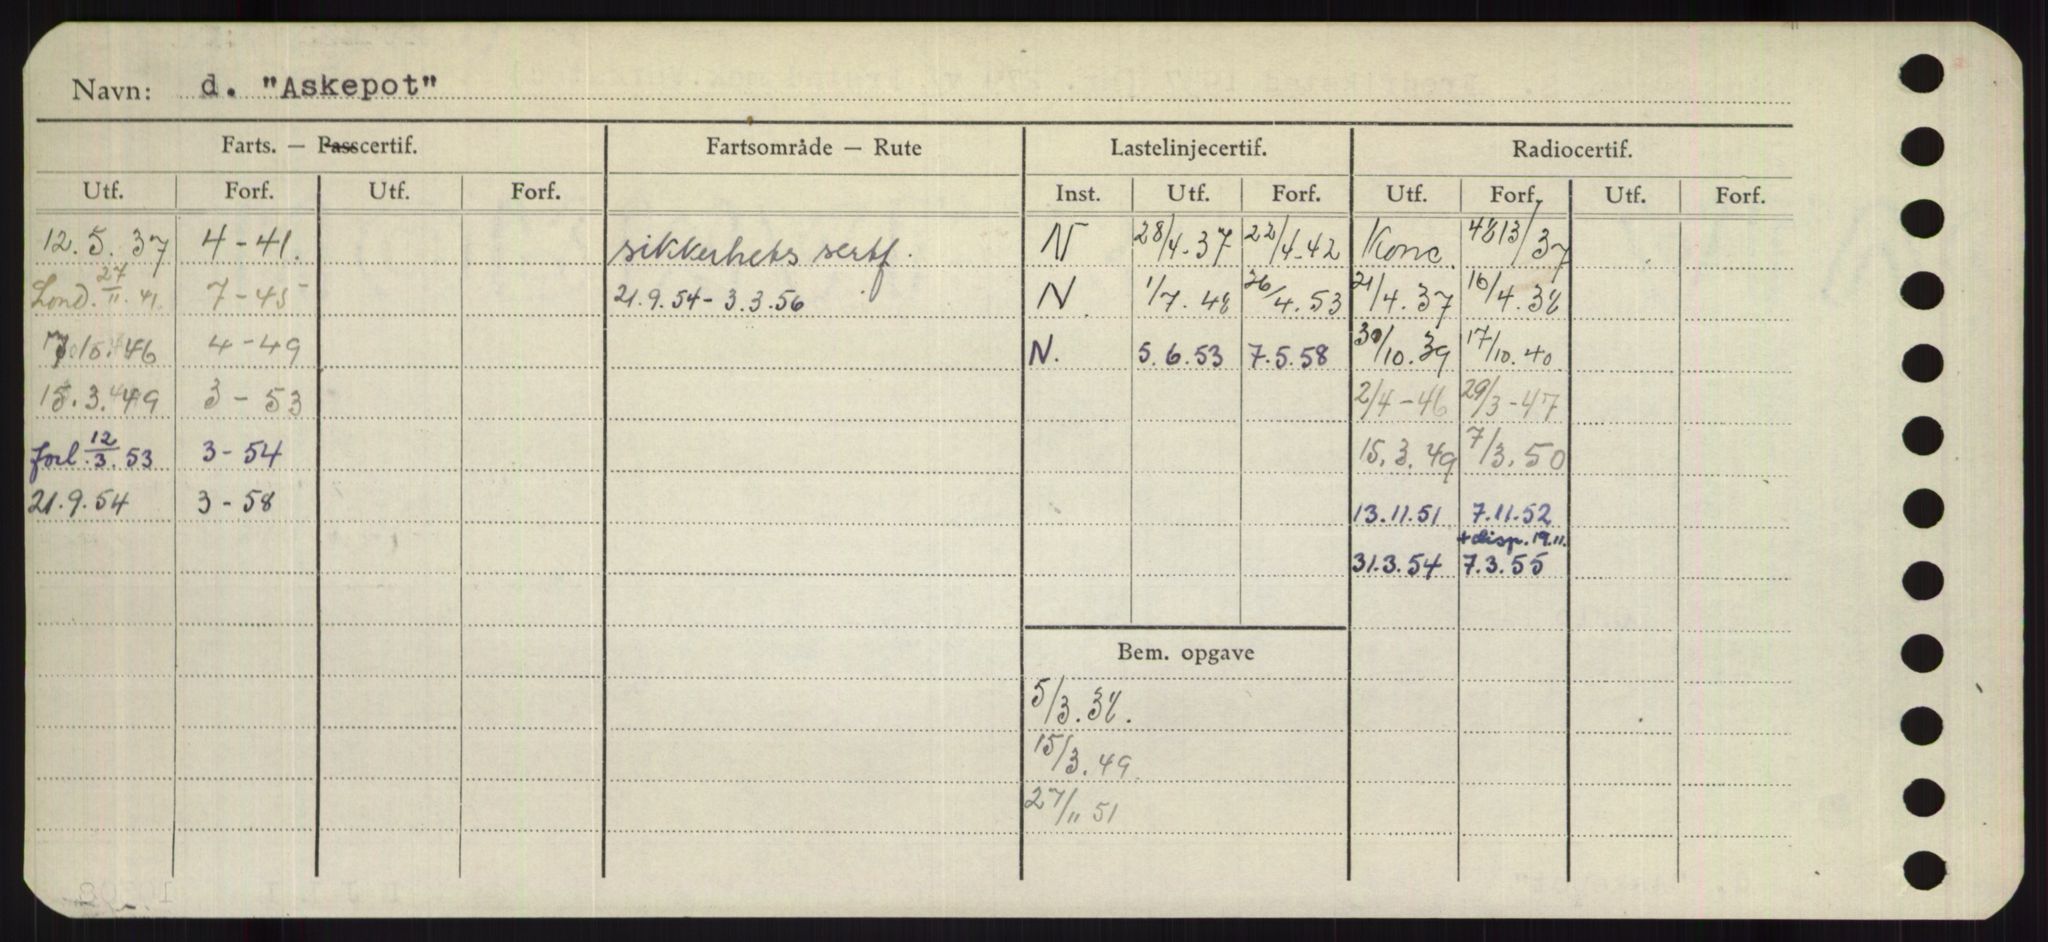 Navn: d. "Askepot"
Farts. — Passcertif. Fartsområde — Rute Lastelinjecertif. Radiocertif.
Utf. Forf. Utf. Forf. Inst. Utf. Forf. Utf. Forf. Utf. Forf.
12. 5. 37 4 - 41. sikkerhets sertf. N 28/4. 37 22/4. 42 Konc. 4813/37
Lond. 27/11. 41. 7 - 45 21. 9. 54 - 3. 3. 56 N. 1/7. 48 26/4. 53 21/4. 37 16/4. 38
46 4 - 49 N. 5. 6. 53 7. 5. 58 30/10. 39 17/10. 40.
15. 3. 49 3 - 53 2/4 - 46 29/3 - 47
forl. 12/3. 53 3 - 54 15. 3. 49 7/3. 50
21. 9. 54 3 - 58 13. 11. 51 7. 11. 52
+ disp. 19. 11.
31. 3. 54 7. 3. 55
Bem. opgave
5/3. 38.
15/3. 49.
27/11 51